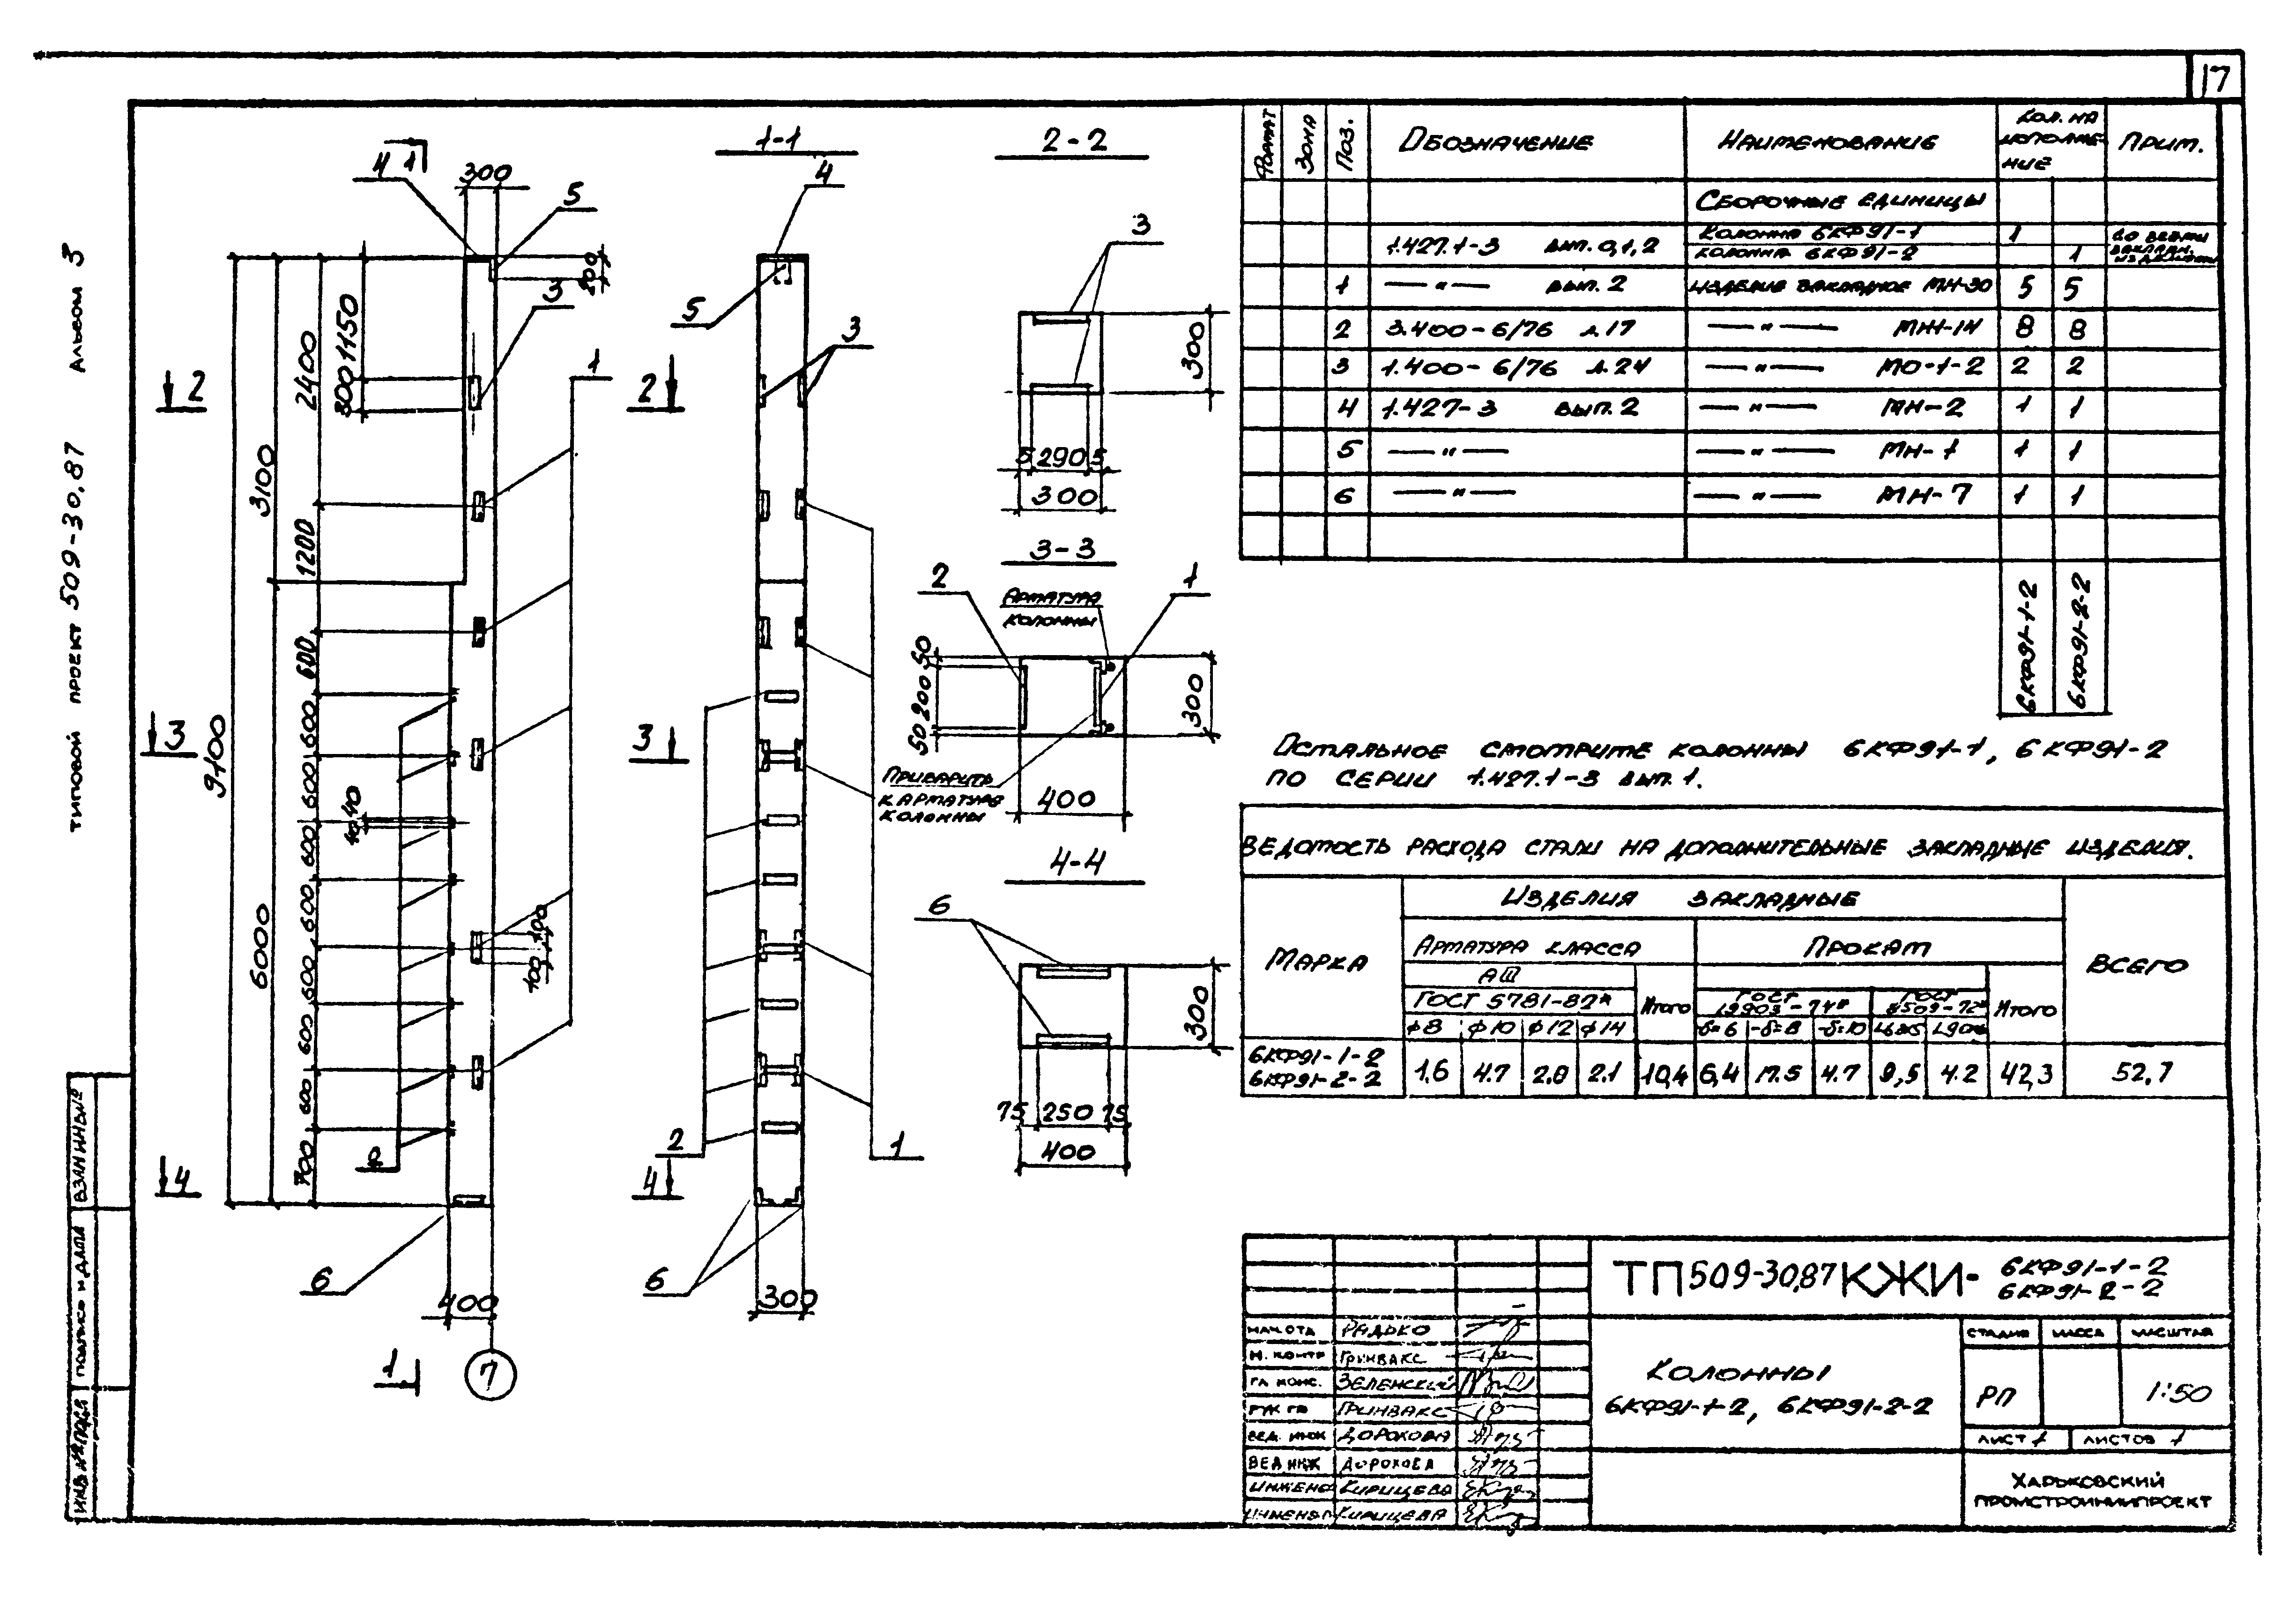 17
ТИПОВОЙ ПРОЕКТ 509-30.87 АЛЬБОМ 3
1-1
2-2
3-3
4-4
4
1
300
5
200
3
1
2
2
2400
1150
300
3100
1200
600
3
3
9100
600
600
40
40
600
600
600
600
600
6000
100
100
700
2
4
4
6
400
1
7
4
5
3
2
1
6
300
3
300
5 290 5
300
2
АРМАТУРА
КОЛОННЫ
1
50
200
50
300
ПРИВАРИТЬ
К АРМАТУРЕ
КОЛОННЫ
400
6
300
75 250 75
400
ФОРМАТ ЗОНА ПОЗ. ОБОЗНАЧЕНИЕ НАИМЕНОВАНИЕ КОЛ. НА ИСПОЛНЕНИЕ ПРИМ.
СБОРОЧНЫЕ ЕДИНИЦЫ
1.427.1-3 ВЫП. 0,1,2 КОЛОННА 6КФ91-1 1
КОЛОННА 6КФ91-2 1
1 —"— ВЫП. 2 ИЗДЕЛИЕ ЗАКЛАДНОЕ МН-30 5 5
2 3.400-6/76 Л.17 —"— 8 8
3 1.400-6/76 Л.24 —"— МО-1-2 2 2
4 1.427-3 ВЫП. 2 —"— МН-2 1 1
5 —"— —"— МН-1 1 1
6 —"— —"— МН-7 1 1
6КФ91-1-2
6КФ91-2-2
ОСТАЛЬНОЕ СМОТРИТЕ КОЛОННЫ 6КФ91-1, 6КФ91-2
ПО СЕРИИ 1.427.1-3 ВЫП. 1.
ВЕДОМОСТЬ РАСХОДА СТАЛИ НА ДОПОЛНИТЕЛЬНЫЕ ЗАКЛАДНЫЕ ИЗДЕЛИЯ.
МАРКА
ИЗДЕЛИЯ ЗАКЛАДНЫЕ
ВСЕГО
АРМАТУРА КЛАССА
ПРОКАТ
АIII
ГОСТ 5781-82*
ИТОГО
ГОСТ 19903-74*
ГОСТ 8509-72*
ИТОГО
φ8 φ10 φ12 φ14 -δ=6 -δ=8 -δ=10
6КФ91-1-2
6КФ91-2-2
1,6 4.7 2.0 2.1 10,4 6,4 17.5 4.7 9,5 4.2 42,3 52,7
ТП 509-30,87 КЖИ- 6КФ91-1-2
6КФ91-2-2
НАЧ. ОТД РАДЬКО
Н. КОНТР ГРИНВАКС
ГЛ. КОНС. ЗЕЛЕНСКИЙ
РУК ГР ГРИНВАКС
ВЕД. ИНЖ ДОРОХОВА
ВЕД. ИНЖ ДОРОХОВА
ИНЖЕНЕР КИРИЩЕВА
ИНЖЕНЕР КИРИЩЕВА
КОЛОННЫ
6КФ91-1-2, 6КФ91-2-2
СТАДИЯ МАССА МАСШТАБ
РП 1:50
ЛИСТ 1 ЛИСТОВ 1
ХАРЬКОВСКИЙ
ПРОМСТРОЙНИИПРОЕКТ
ВЗАМ ИНВ №
ПОДПИСЬ И ДАТА
ИНВ № ПОДЛ